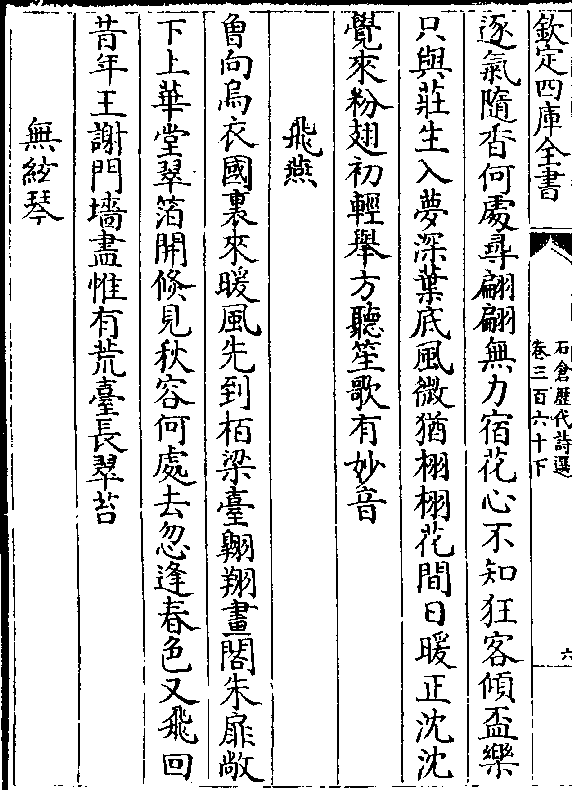 欽定四庫全書
石倉歴代詩選
卷三百六十下
六
逐氣隨香何處尋翩翩無力宿花心不知狂客傾盃樂
只與莊生入夢深葉底風微猶栩栩花間日暖正沈沈
覺來粉翅初輕舉方聽笙歌有妙音
飛燕
曾向烏衣國裏來暖風先到栢梁臺翺翔畫閣朱扉敞
下上華堂翠箔開倐見秋容何處去忽逢春色又飛回
昔年王謝門墻盡惟有荒臺長翠苔
無絃琴